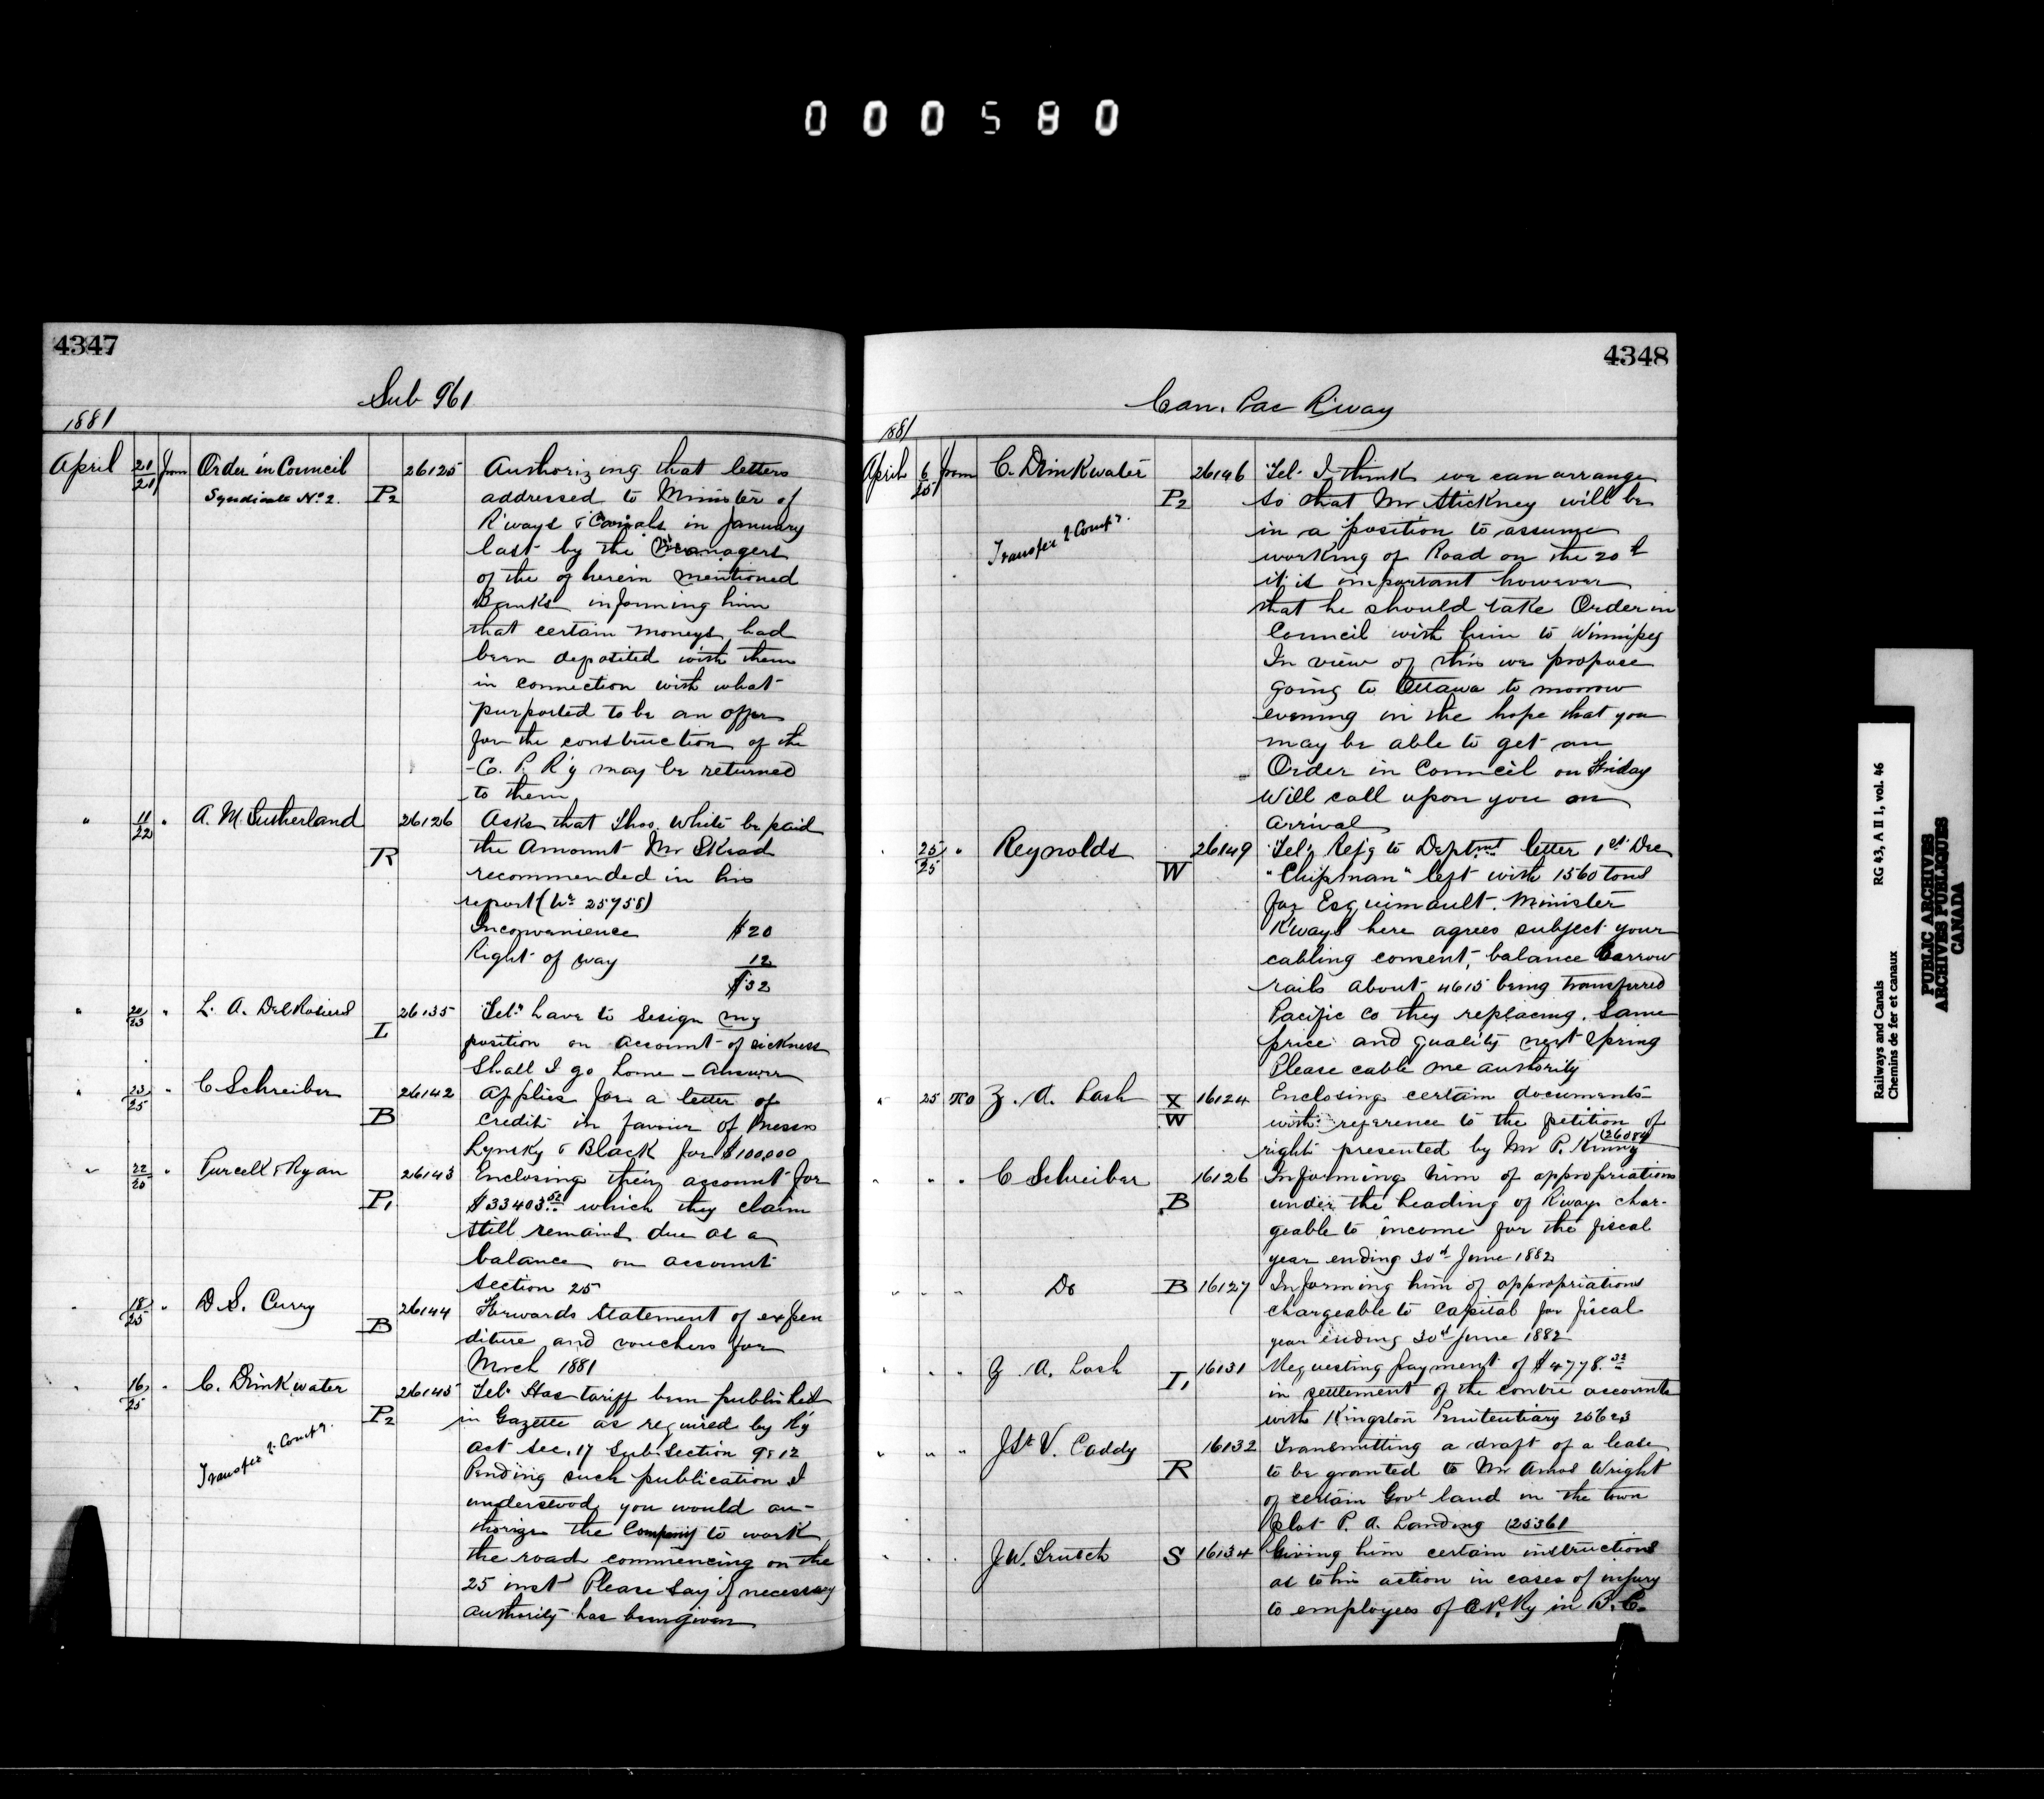 000580
4347
Sub 961
1881
April 21/21 from Order in Council 26125 Authorizing that letters
Syndicate No 2. P2 addressed to Minister of
R'ways & Canals in January
last by the Managers
of the of herein mentioned
Banks informing him
that certain moneys had
been deposited with them
in connection with what
purported to be an offer
for the construction of the
C. P. R'y may be returned
to them
" 11/22 " A. M. Sutherland 26126 Asks that Thos. White be paid
R the Amount Mr Skead
recommended in his
report (No 25758)
Inconvenience $20
Right of way 12
$32
" 20/23 " L. A. 26135 Tel. have to resign my
I position on account of sickness
Shall I go home - Answer
" 23/25 " C Schreiber 26142 Applies for a letter of
B Credit in favour of Messrs
Lynsky & Black for $100,000
" 22/25 " Purcell & Ryan 26143 Enclosing their account for
P1 $33403.52 which they claim
still remains due as a
balance on account
Section 25
" 18/25 " D S. Curry 26144 Forwards Statement of expen
B diture and vouchers for
March 1881
" 16/25 " C. Drinkwater 26145 Tel. Has tariff been published
P2 in Gazette as required by R'y
Transfer 2 Compr. act Sec. 17 Sub. Section 9 & 12
Pending such publication I
understood you would au-
thorize the Company to work
the road commencing on the
25 inst Please say if necessary
authority has been given
4348
Can. Pac R'way
1881
April 6/25 from C. Drinkwater 26146 Tel. I think we can arrange
P2 so that Mr Stickney will be
Transfer 2 Compr. in a position to assume
working of Road on the 20th
it is important however
that he should take Order in
Council with him to Winnipeg
In view of this we propose
going to Ottawa to morrow
evening in the hope that you
may be able to get an
Order in Council on Friday
Will call upon you on
arrival
" 25/25 " Reynolds 26149 Tel. Refg to Deptmt letter 1st Dec
W "Chipman" left with 1560 tons
for Esquimault. Minister
R'ways here agrees subject your
cabling consent, balance Barrow
rails about 4615 being transferred
Pacific Co they replacing. Same
price and quality next Spring
Please cable me authority
" 25 To Z. A. Lash X 16124 Enclosing certain documents
W with reference to the petition of
right presented by Mr P. Kenny 26084
" " " C Schreiber 16126 Informing him of appropriations
B under the heading of R'ways char-
geable to income for the fiscal
year ending 30th June 1882
" " " Do B 16127 Informing him of appropriations
chargeable to Capital for fiscal
year ending 30th June 1882
" " " Z A. Lash 16131 Requesting payment of $4778.32
I1 in settlement of the contra accounts
with Kingston Penitentiary 25623
" " " J St V. Caddy 16132 Transmitting a draft of a lease
R to be granted to Mr Amos Wright
of certain Govt land in the town
plot P. A. Landing 25361
" " " J W. Trutch S 16134 Giving him certain instructions
as to his action in cases of injury
to employees of C.P. Ry in B. C.
Railways and Canals RG 43, A II 1, vol. 46
Chemins de fer et canaux
PUBLIC ARCHIVES
ARCHIVES PUBLIQUES
CANADA